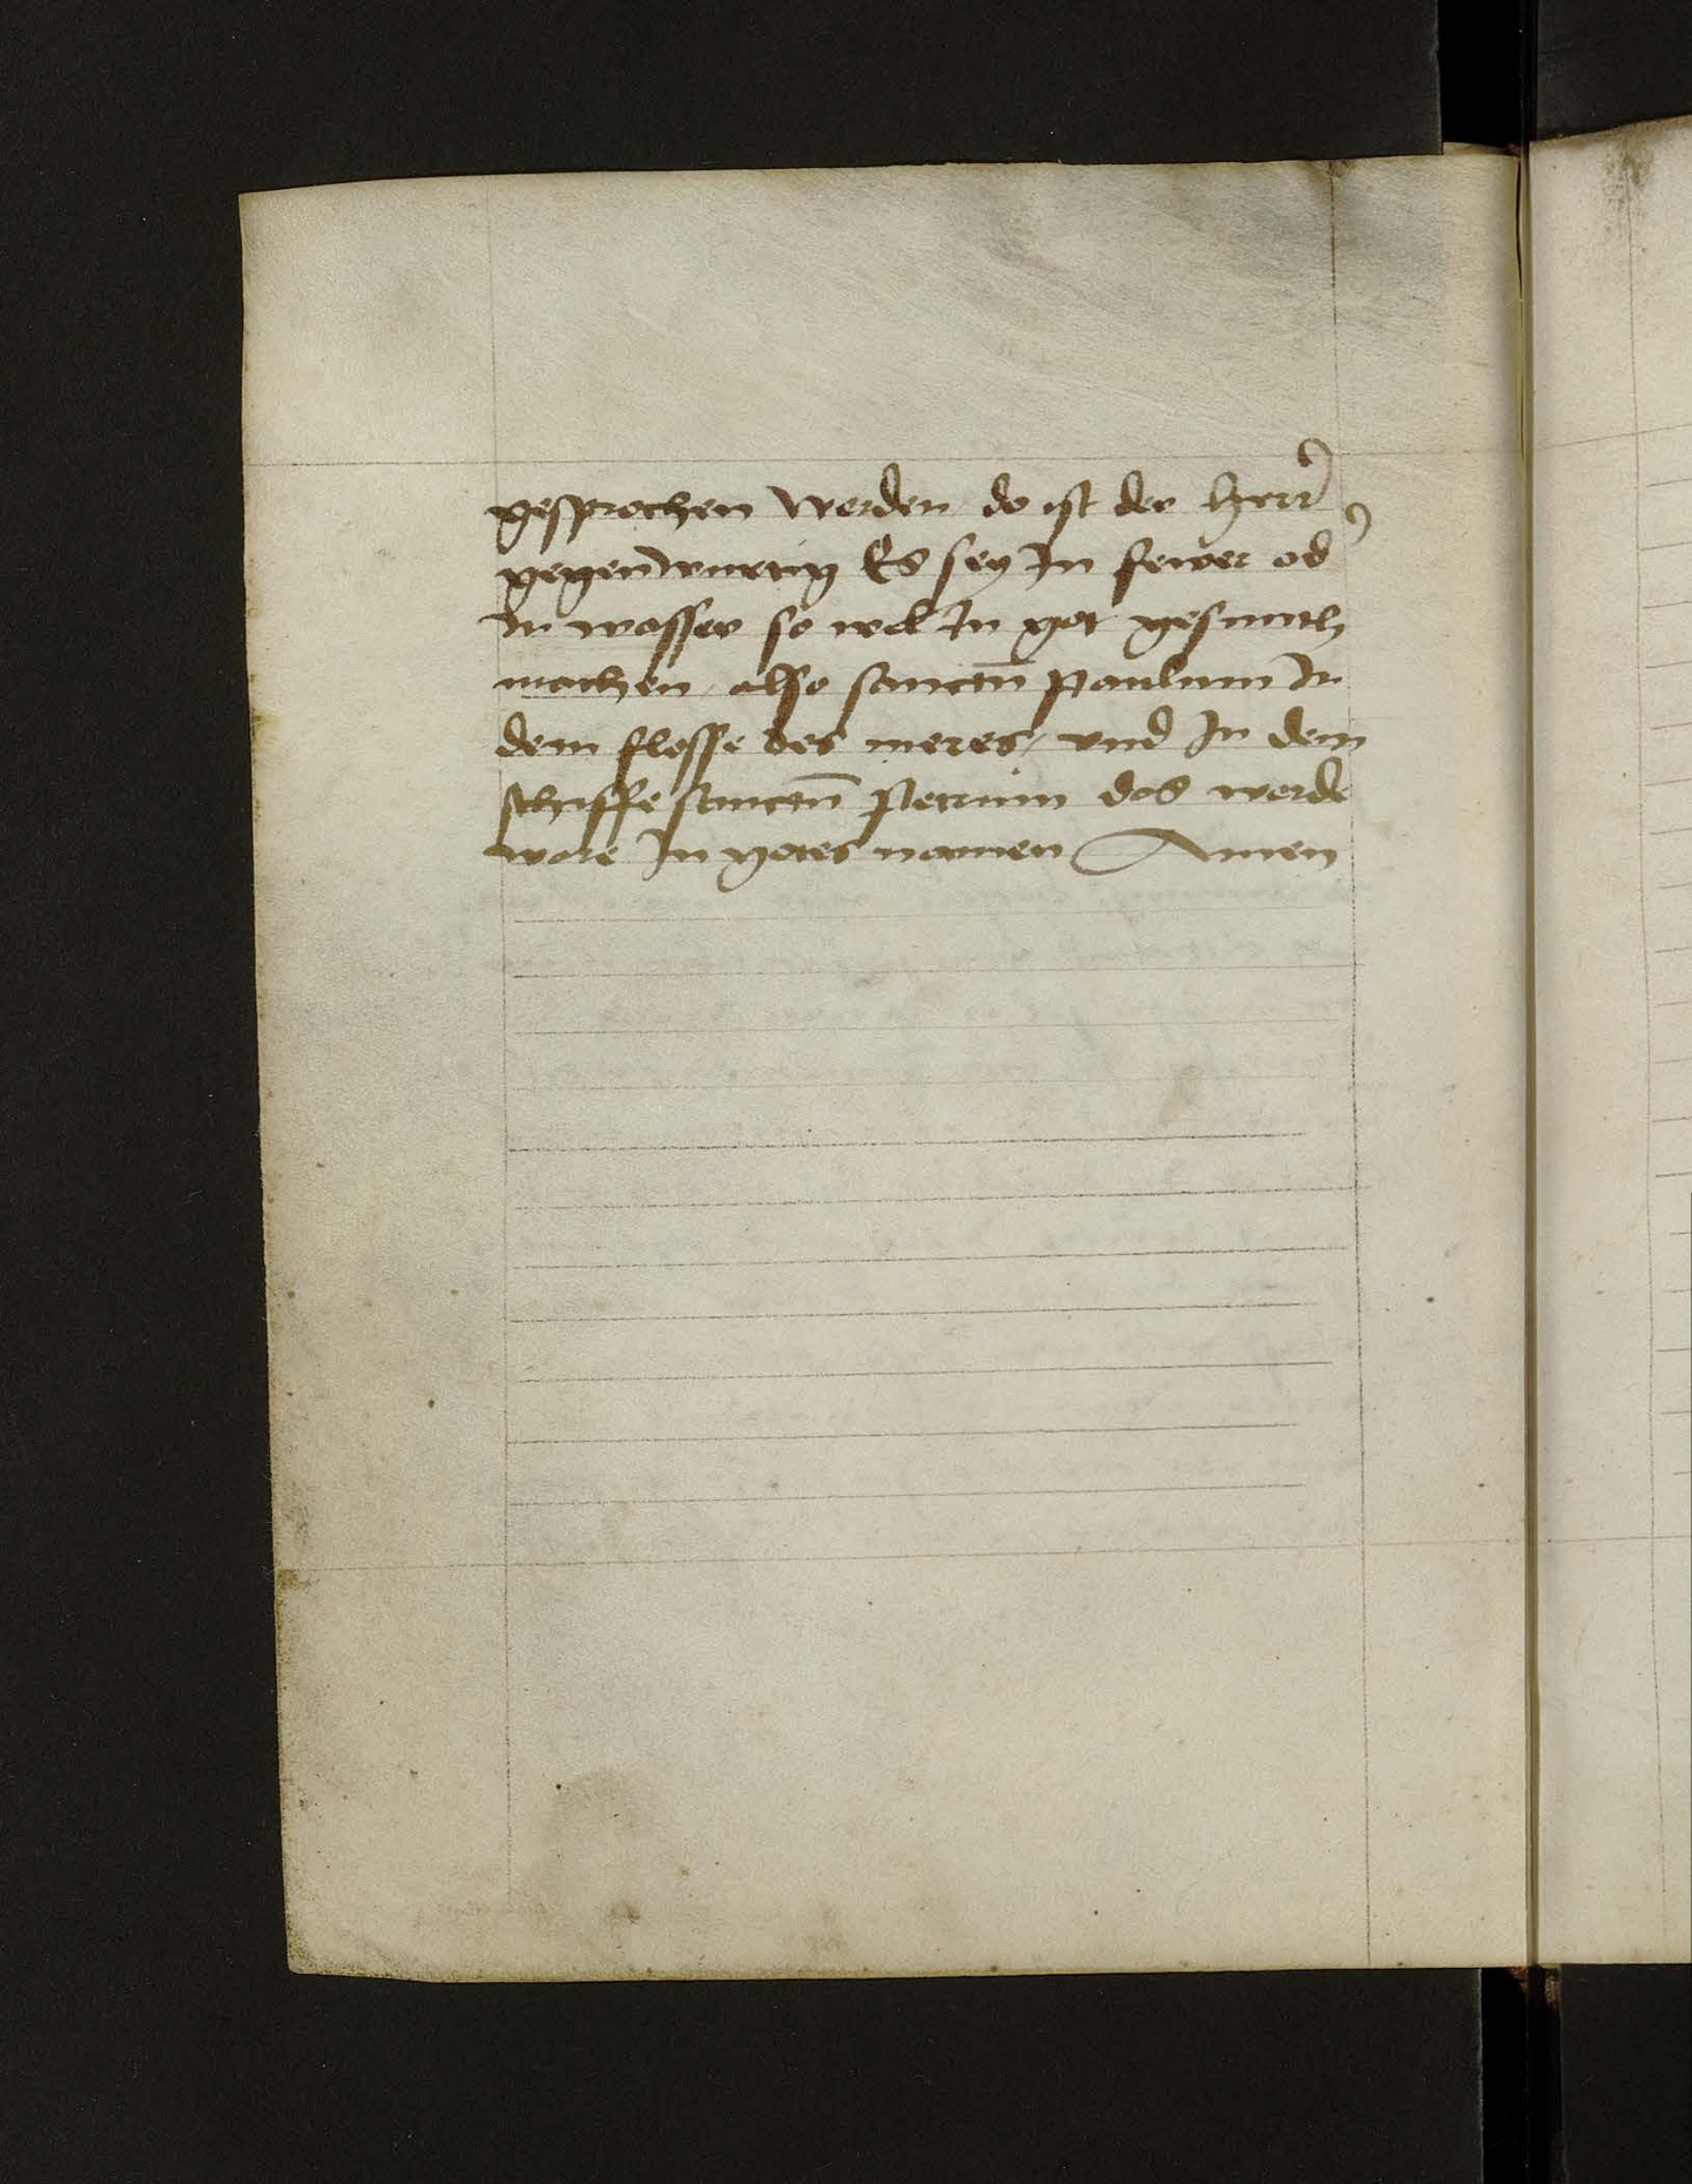 gesprochen werden do ist der herr
gegenwurtig Es sey In fewer od
In wasser so wel In got gesunth
machen / also sanctū paulum In
dem flosse des meres / vnd In dem
schiffe sanctū petrum das werde
ware In gotes namen Amen